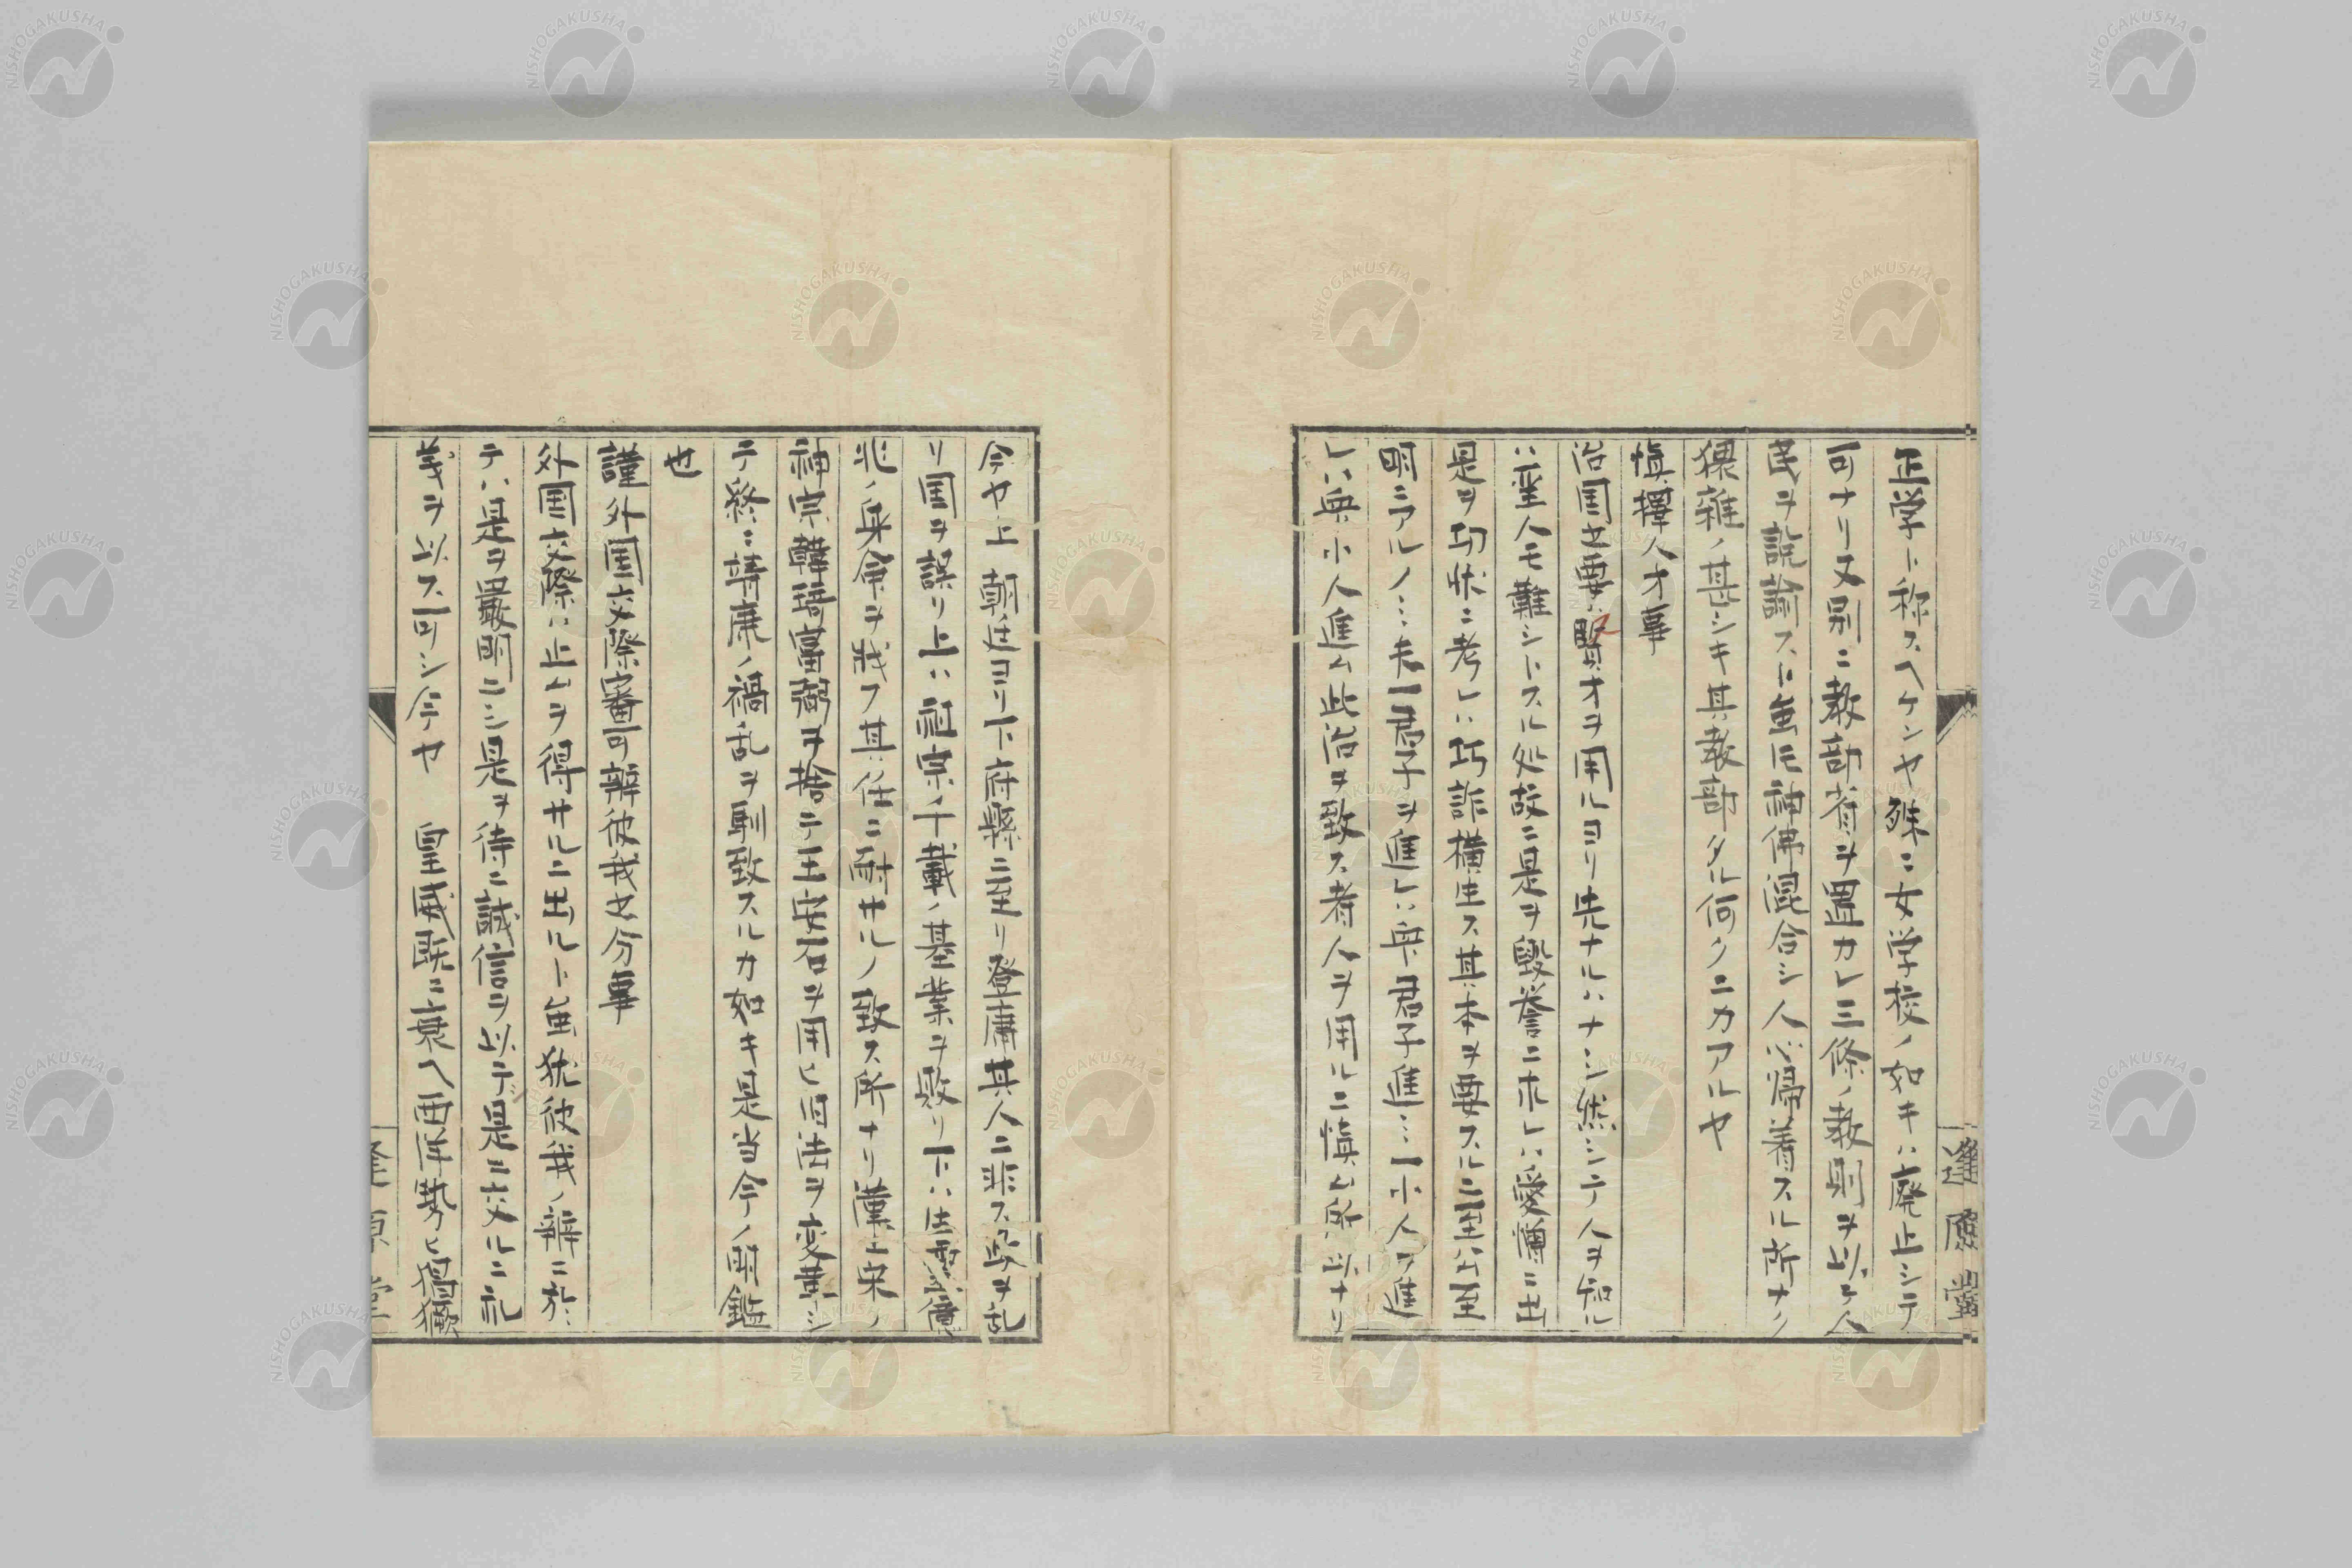 正学ト称スヘケンヤ殊ニ女学校ノ如キハ廃止シテ
可ナリ又別ニ教部省ヲ置カレ三條ノ教則ヲ以テ人
民ヲ説諭スト雖𪜈神佛混合シ人心帰着スル所ナク
猥雑ノ甚シキ其教部タル何クニカアルヤ
慎擇人才事
治国之要ハ賢才ヲ用ルヨリ先ナルハナシ然シテ人ヲ知ル
ハ聖人モ難シトスル処故ニ是ヲ毀誉ニ求レハ愛憎ニ出
是ヲ功状ニ考レハ巧詐横生ス其本ヲ要スルニ至公至
明ニアルノミ夫一君子ヲ進レハ衆君子進ミ一小人ヲ進
レハ衆小人進ム此治ヲ致ス者人ヲ用ルニ慎ム所以ナリ
今ヤ上朝廷ヨリ下府縣ニ至リ登庸其人ニ非ス政ヲ乱
リ国ヲ誤リ上ハ冠宗千載ノ基業ヲ敗リ下ハ
兆ノ身命ヲ戕フ其任ニ耐サルノ致ス所ナリ漢土宋ノ
神宗韓琦富弼ヲ捨テ王安石ヲ用ヒ旧法ヲ変革シ
テ終ニ靖康ノ禍乱ヲ馴致スルカ如キ是当今ノ明鑑
也
謹外国交際審可辨彼我之分事
外国交際ハ止ムヲ得サルニ出ルト雖犹彼我ノ辨ニ於
テハ是ヲ嚴明ニシ是ヲ待ニ誠信ヲ以テ是ニ交ルニ礼
義ヲ以ス可シ今ヤ 皇威既ニ衰ヘ西洋勢ヒ猖獗
逢原堂
逢原堂
NISHOGAKUSHA